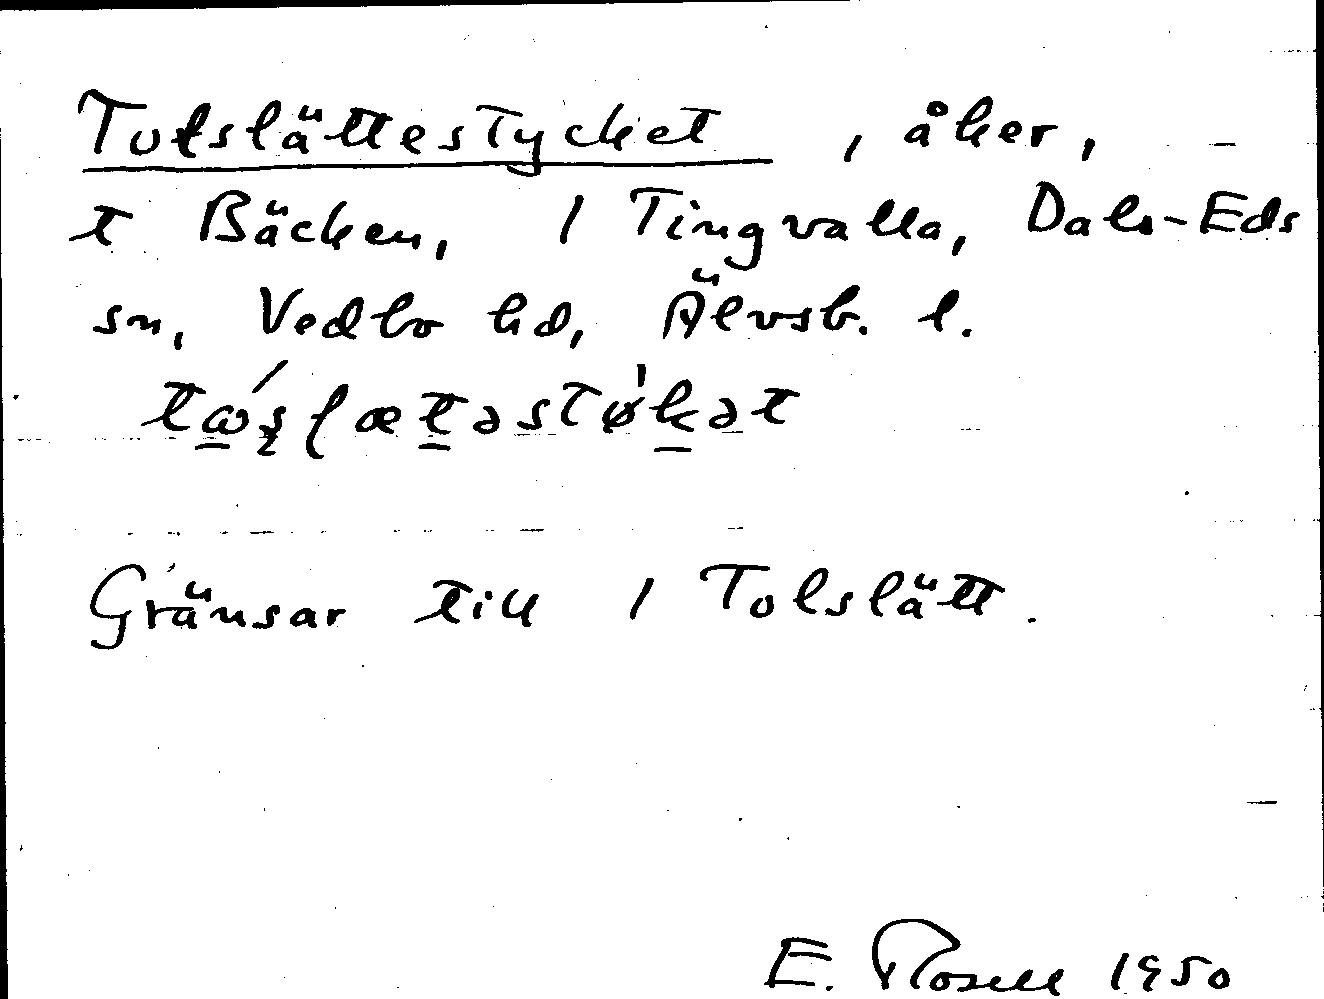 Tolslättestycket, åker,
t Bäcken, 1 Tingvalla, Dals-Eds
sn, Vedbo hd, Älvsb. l.
Gränsar till 1 Tolslätt.
E. Rosell 1950